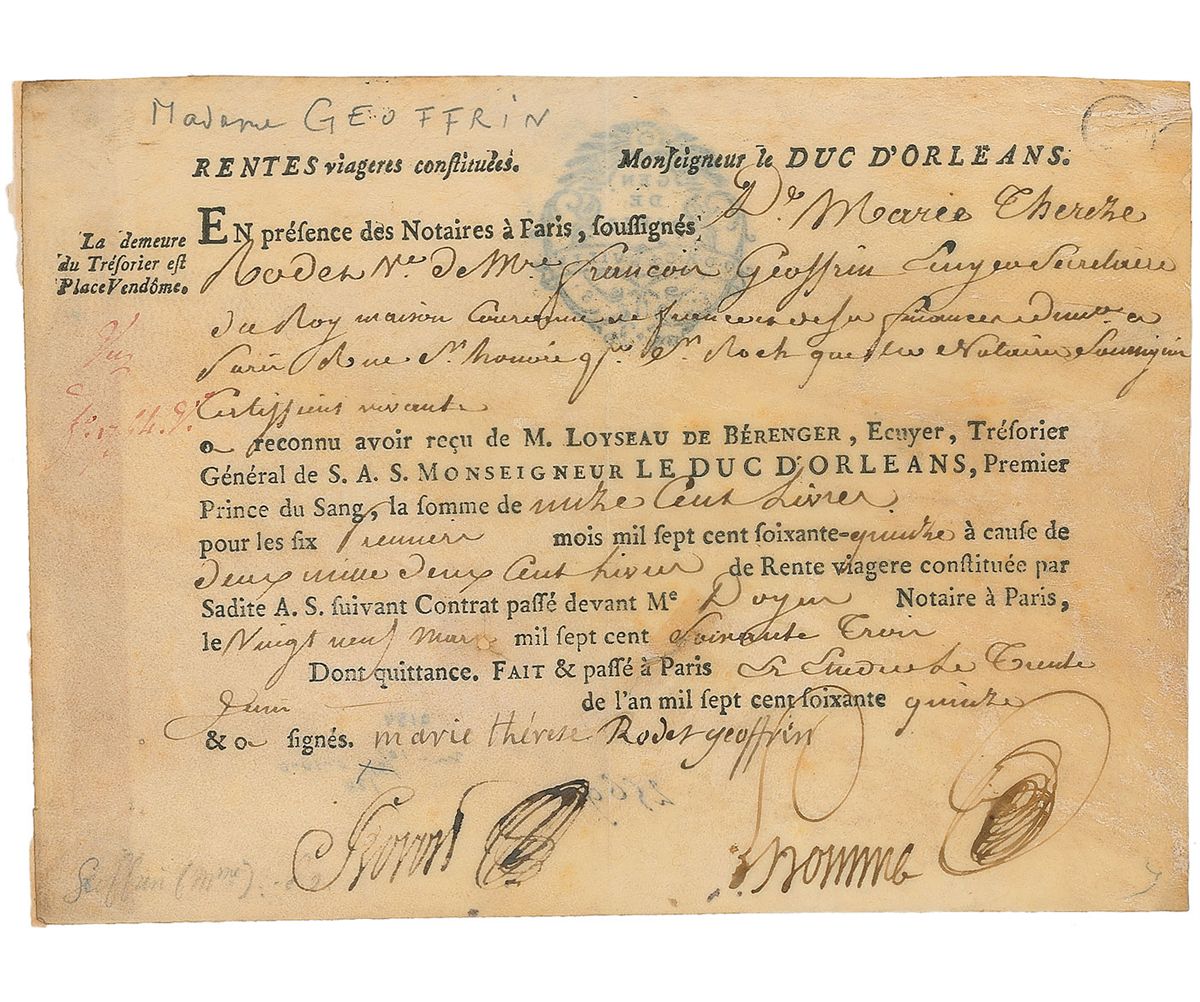 Madame GEOFFRIN
RENTES viageres constituées. Monseigneur le DUC D'ORLEANS.
La demeure
du Trésorier est
Place Vendôme.
EN présence des Notaires à Paris, soussignés De Marie Thereze
Rodet Ve de Mre François Geoffrin Ecuyer Secretaire
du Roy maison Couronne de france et de ses finances demte a
Paris Rue St honoré St Roch que les Notaires Soussignés
Certiffient vivante
a reconnu avoir reçu de M. LOYSEAU DE BÉRENGER, Ecuyer, Trésorier
Général de S. A. S. MONSEIGNEUR LE DUC D'ORLEANS, Premier
Prince du Sang, la somme de onze Cent Livres
pour les six Premiers mois mil sept cent soixante-quinze à cause de
deux mille deux Cent Livres de Rente viagere constituée par
Sadite A. S. suivant Contrat passé devant Me Doyen Notaire à Paris,
le Vingt neuf Mars mil sept cent Soixante Trois
Dont quittance. FAIT & passé à Paris Es Etudes Le Trente
Juin de l'an mil sept cent soixante quinze
& a signés. marie thérese Rodet geoffrin
Geoffrin (Mme)